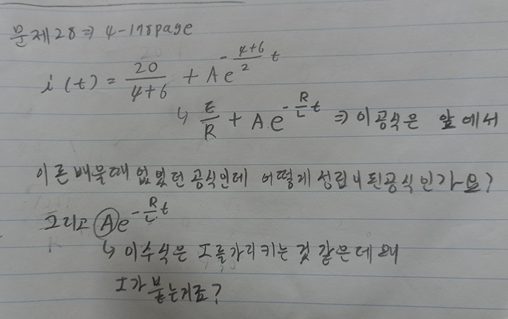 문제28⇒ 4-178page
i(t) = 20/4+6 + Ae^-4+6/2 t
↳ E/R + Ae^-R/L t ⇒ 이공식은 앞에서
이론배울때 없었던 공식인데 어떻게 성립이된공식인가요?
그리고 Ae^-R/L t
↳ 이수식은 I를가리키는 것 같은데 왜
I가 붙는거죠?